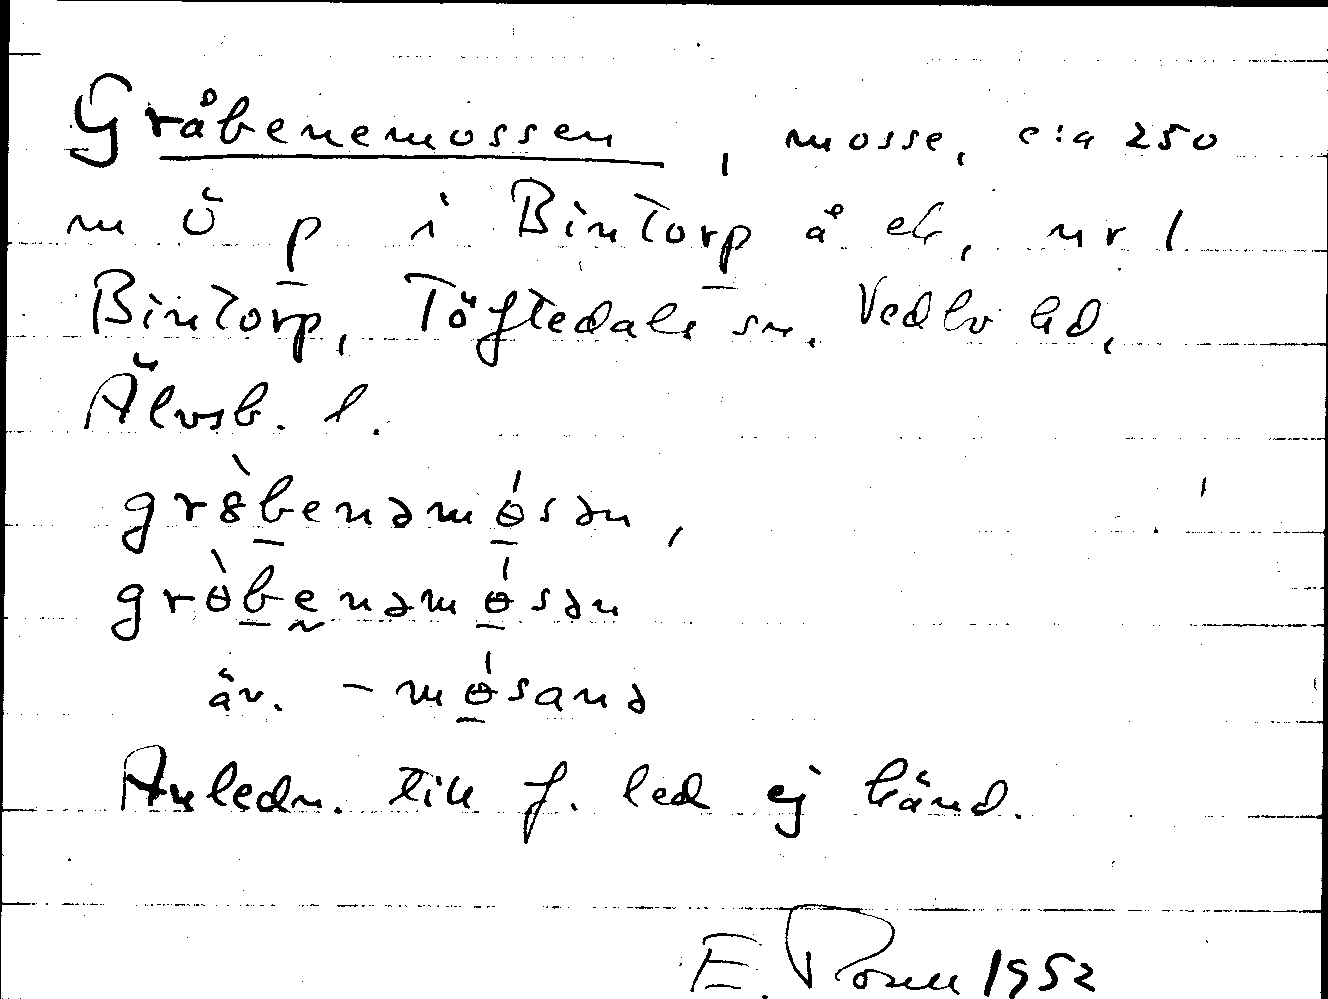 Gråbenemossen, mosse, c:a 250
m ö p i Bintorp å ek, nr 1
Bintorp, Töftedals sn, Vedbo hd,
Älvsb. l.
gr8̀benəmɵ́sən,
grɵ̀benəmɵ́sən
äv. -mɵ́sanə
Anledn. till f. led ej känd.
E. 1952